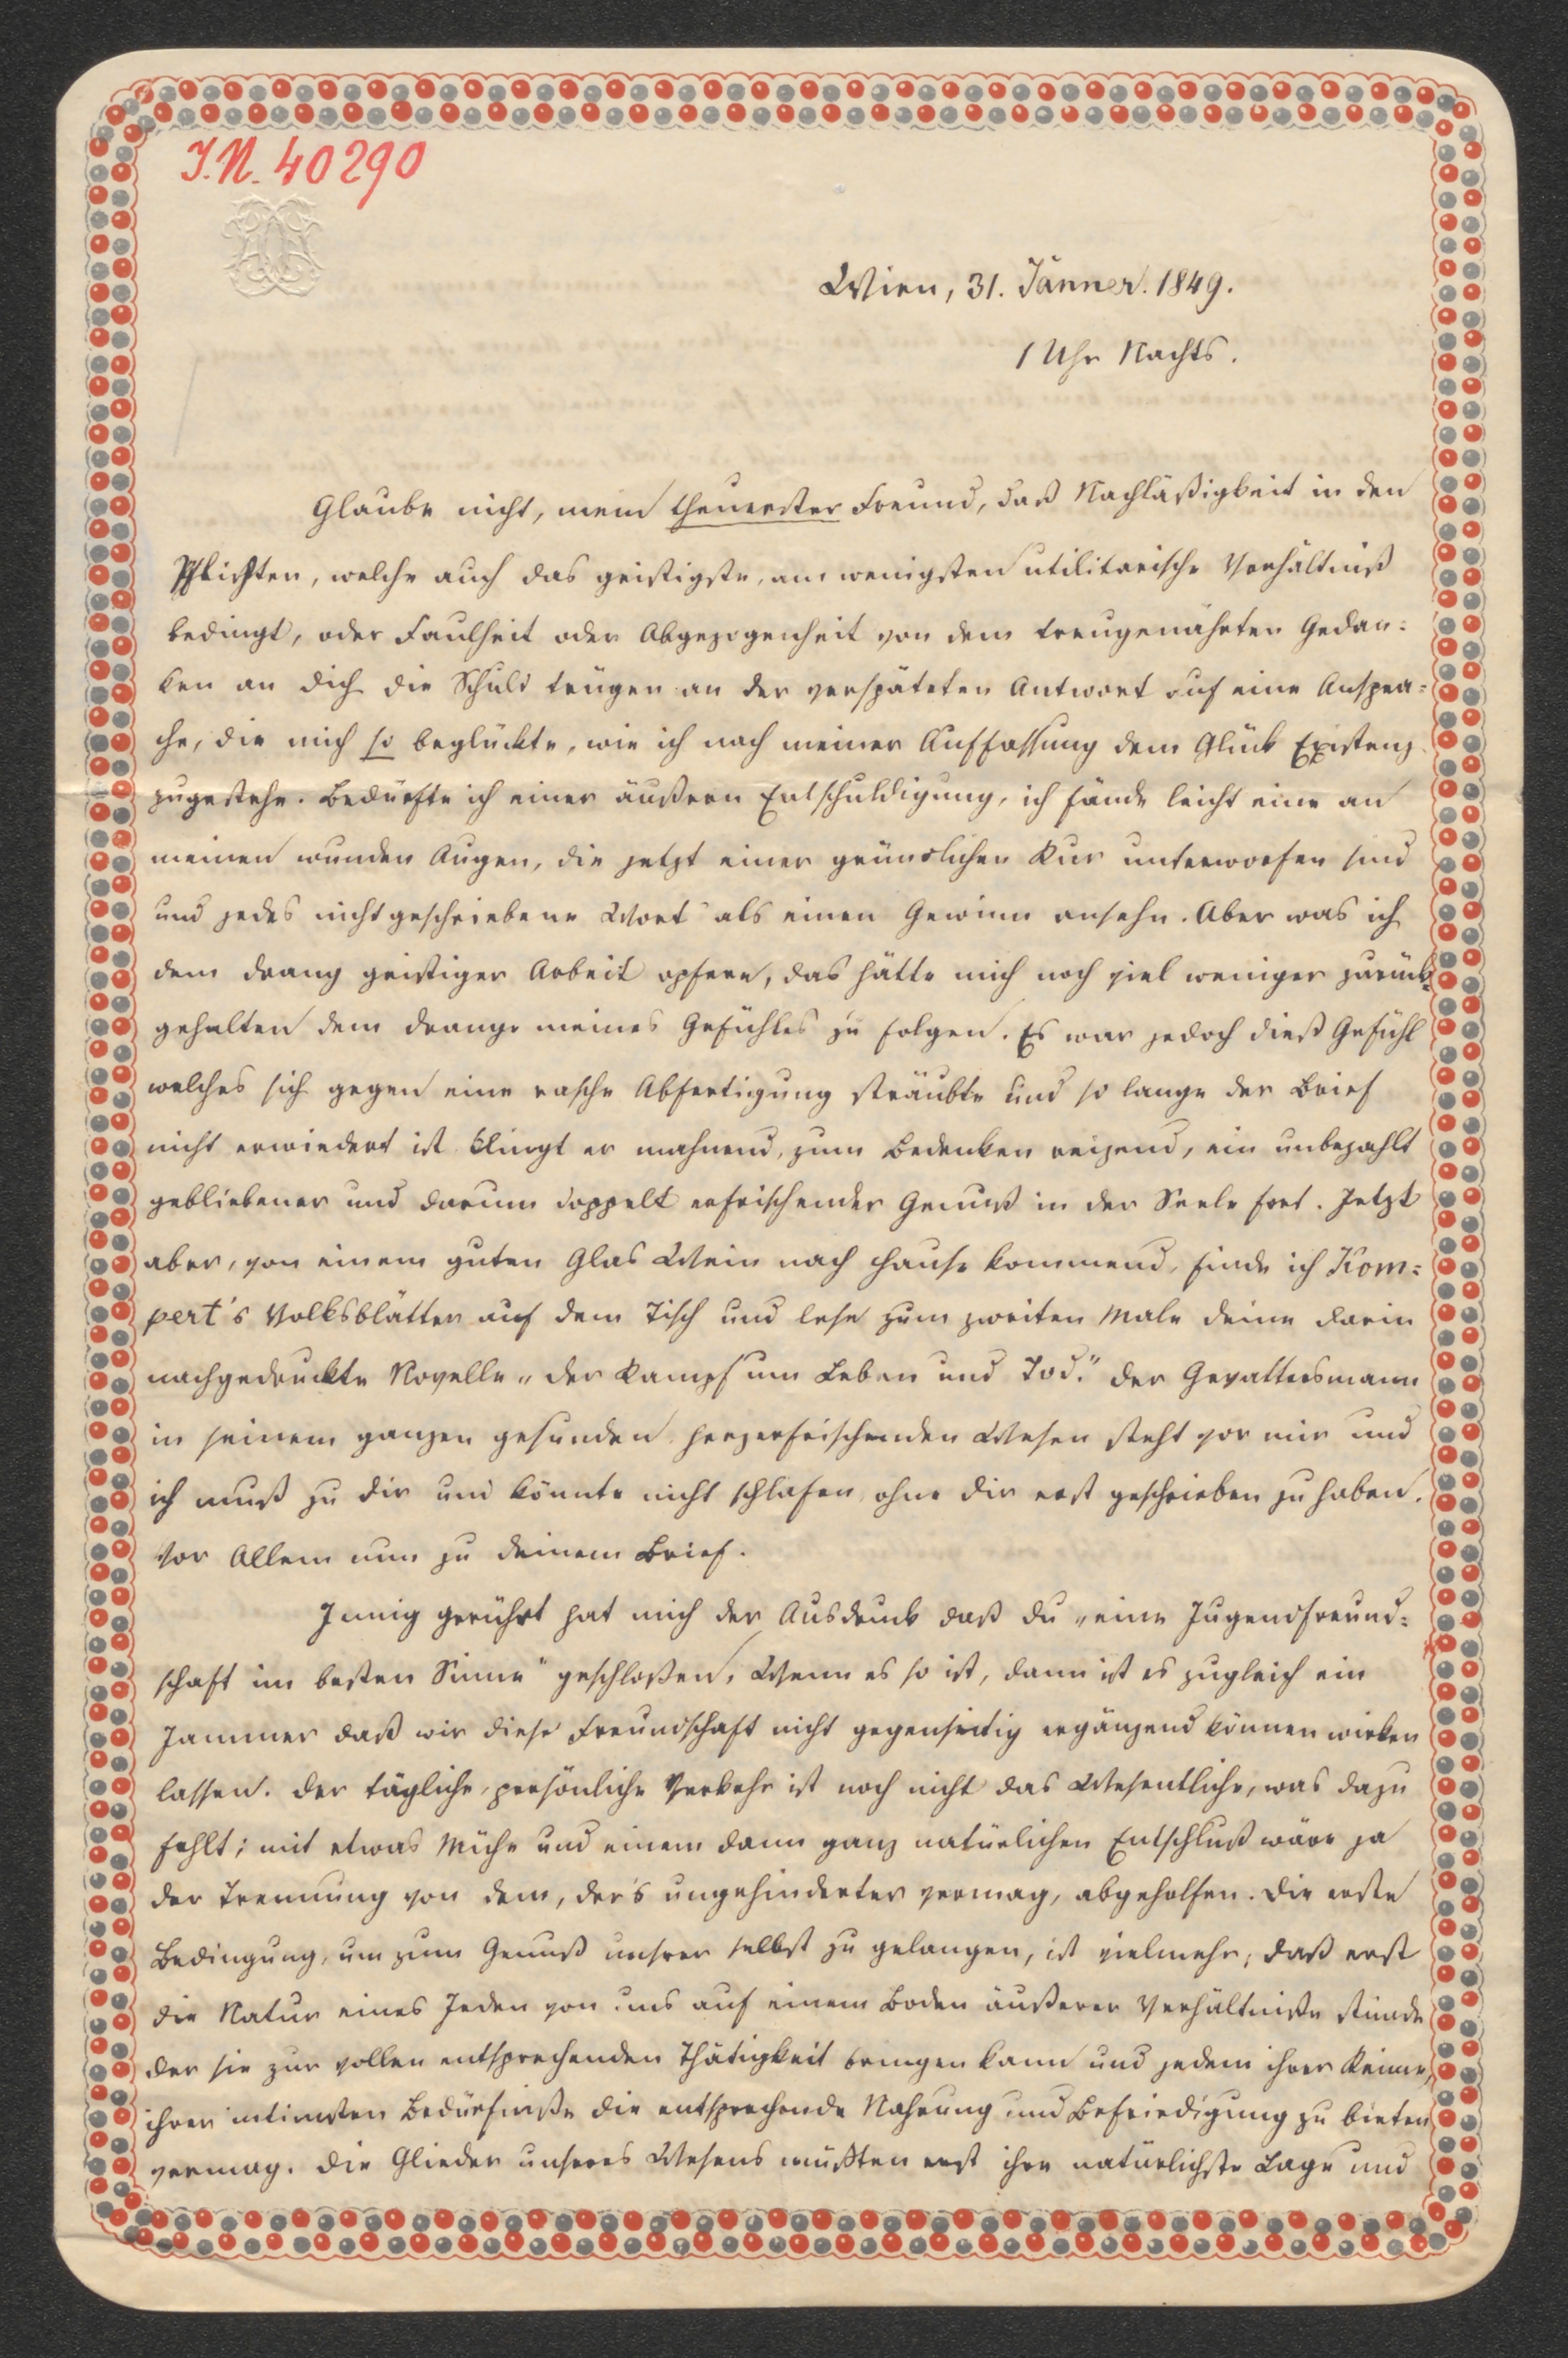 I.N. 40290
Wien, 31. Jänner. 1849.
1 Uhr Nachts.
Glaube nicht, mein theuerster Freund, daß Nachläßigkeit in den
Pflichten, welche auch das geistigste, am wenigsten utilitarische Verhältniß
bedingt, oder Faulheit oder Abgezogenheit von dem treugenährten Gedan=
ken an dich die Schuld trügen an der verspäteten Antwort auf eine Anspra=
che, die mich so beglückte, wie ich nach meiner Auffassung dem Glück Existenz
zugestehe. Bedürfte ich einer äußern Entschuldigung, ich fände leicht eine an
meinen wunden Augen, die jetzt einer gründlichen Kur unterworfen sind
und jedes nicht geschriebene Wort als einen Gewinn ansehn. Aber was ich
dem Drang geistiger Arbeit opfere, das hätte mich noch viel weniger zurück=
gehalten dem Drange meines Gefühles zu folgen. Es war jedoch dieß Gefühl
welches sich gegen eine rasche Abfertigung sträubte und so lange der Brief
nicht erwiedert ist klingt er mahnend, zum Bedenken reizend, ein unbezahlt
gebliebener und darum doppelt erfrischender Genuß in der Seele fort. Jetzt
aber, von einem guten Glas Wein nach Hause kommend, finde ich Kom=
pert's Volksblätter auf dem Tisch und lese zum zweiten Male deine darin
nachgedruckte Novelle „der Kampf um Leben und Tod." Der Gevattersmann
in seinem ganzen gesunden herzerfrischenden Wesen steht vor mir und
ich muß zu dir und könnte nicht schlafen, ohne dir erst geschrieben zu haben.
Vor Allem nun zu deinem Brief.
Innig gerührt hat mich der Ausdruck daß du „eine Jugendfreund=
schaft im besten Sinne" geschloßen. Wenn es so ist, dann ist es zugleich ein
Jammer daß wir diese Freundschaft nicht gegenseitig ergänzend können wirken
lassen. Der tägliche, persönliche Verkehr ist noch nicht das Wesentliche, was dazu
fehlt; mit etwas Mühe und einem dann ganz natürlichen Entschluß wäre ja
der Trennung von dem, der's ungehinderter vermag, abgeholfen. Die erste
Bedingung, um zum Genuß unsrer selbst zu gelangen, ist vielmehr, daß erst
die Natur eines Jeden von uns auf einem Boden äußerer Verhältniße stünde
der sie zur vollen entsprechenden Thätigkeit bringen kann und jedem ihrer Keime,
ihrer intimsten Bedürfniße die entsprechende Nahrung und Befriedigung zu bieten
vermag. Die Glieder unseres Wesens müßten erst ihre natürlichste Lage und